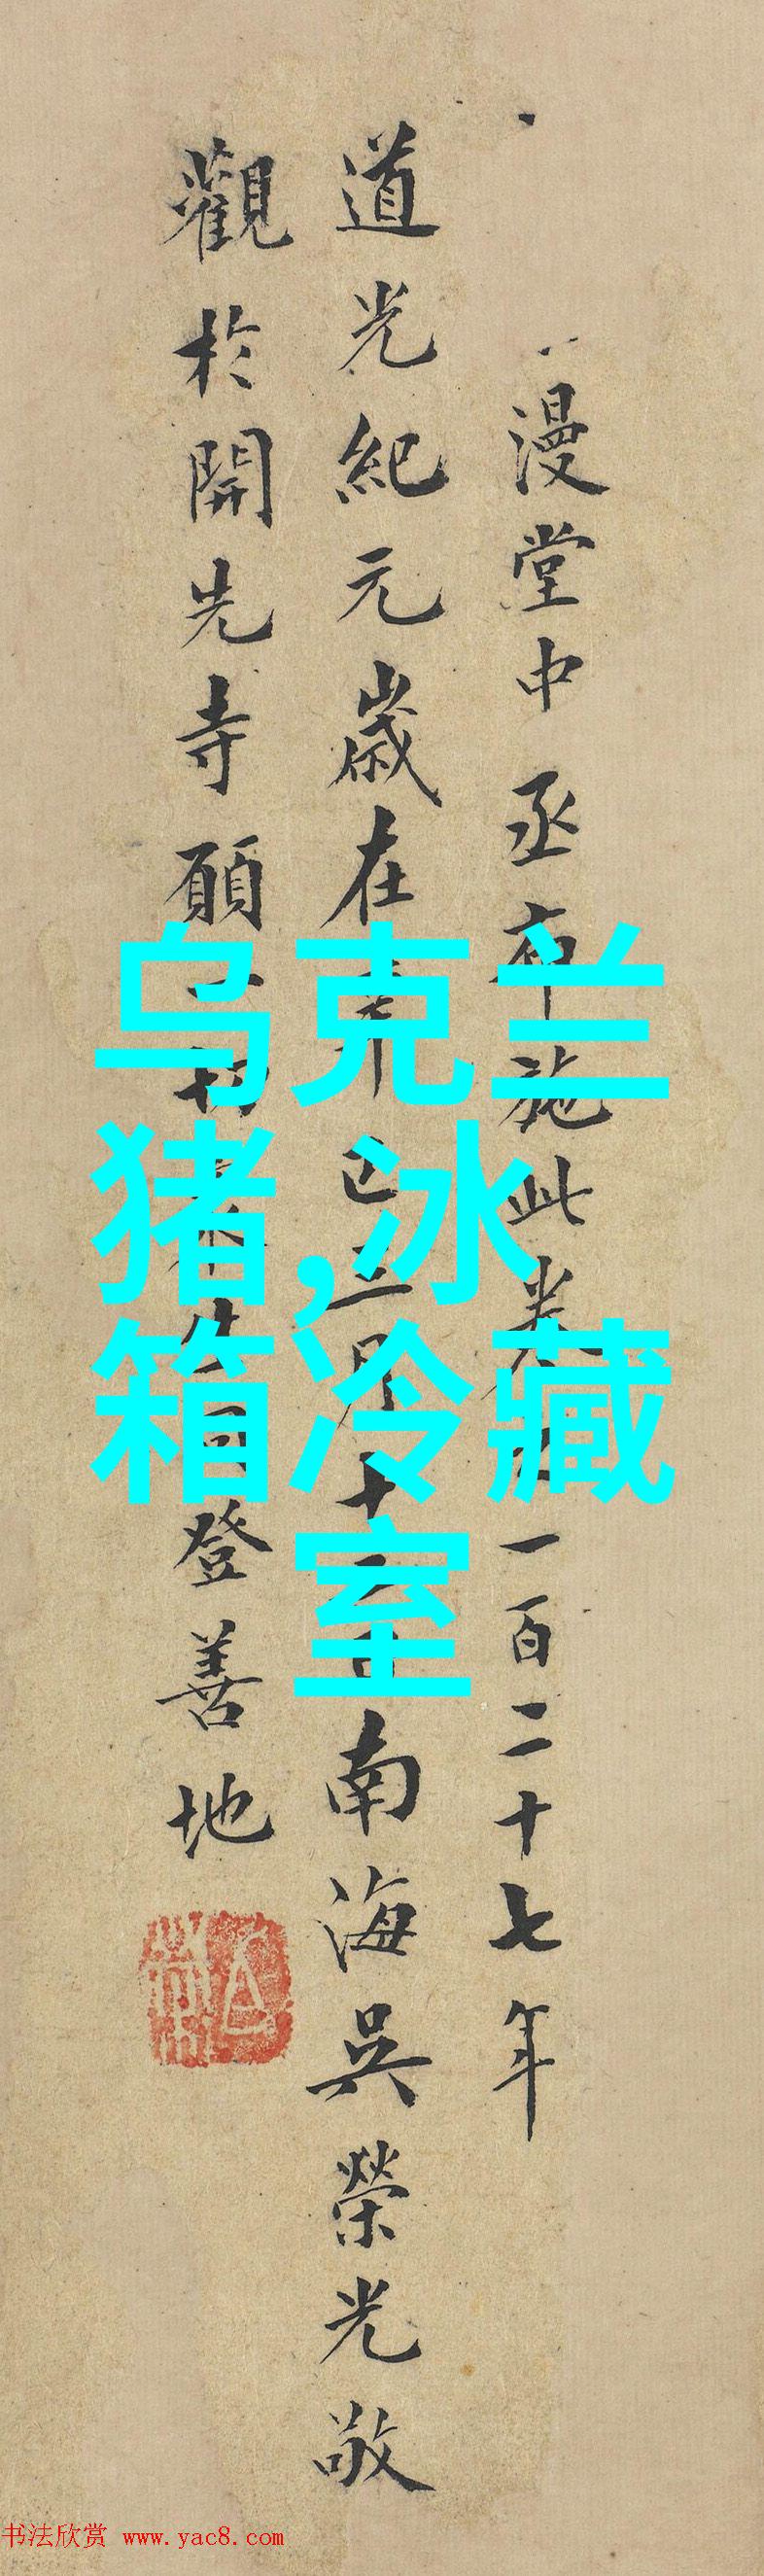 漫堂中丞布施此卷
一百二十七年
道光紀元歲在辛巳
月十
南海吳榮光敬
觀於開先寺願一切
登善地
乌克兰
猪,冰
箱冷藏
室
书法欣赏 www.yac8.com